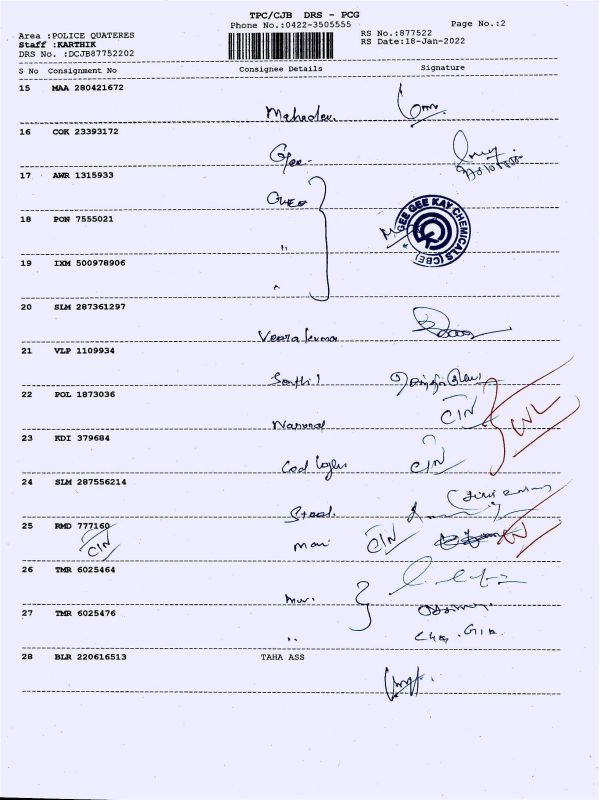 TPC/CJB DRS - PCG
Phone No.:0422-3505555 Page No.:2
Area :POLICE QUATERES RS No.:877522
Staff :KARTHIK RS Date:18-Jan-2022
DRS No. :DCJB87752202
S No Consignment No Consignee Details Signature
15 MAA 280421672
Mahadev
16 COK 23393172
17 AWR 1315933
18 PON 7555021
GEE GEE KAY CHEMICALS (CBE)
19 IXM 500978906
20 SLM 287361297
Veerakumar
21 VLP 1109934
Senthil
22 POL 1873036
CIN
National
23 KDI 379684
CIN
24 SLM 287556214
Steel
25 RMD 777160
CIN Mani CIN
26 TMR 6025464
27 TMR 6025476
28 BLR 220616513 TAHA ASS